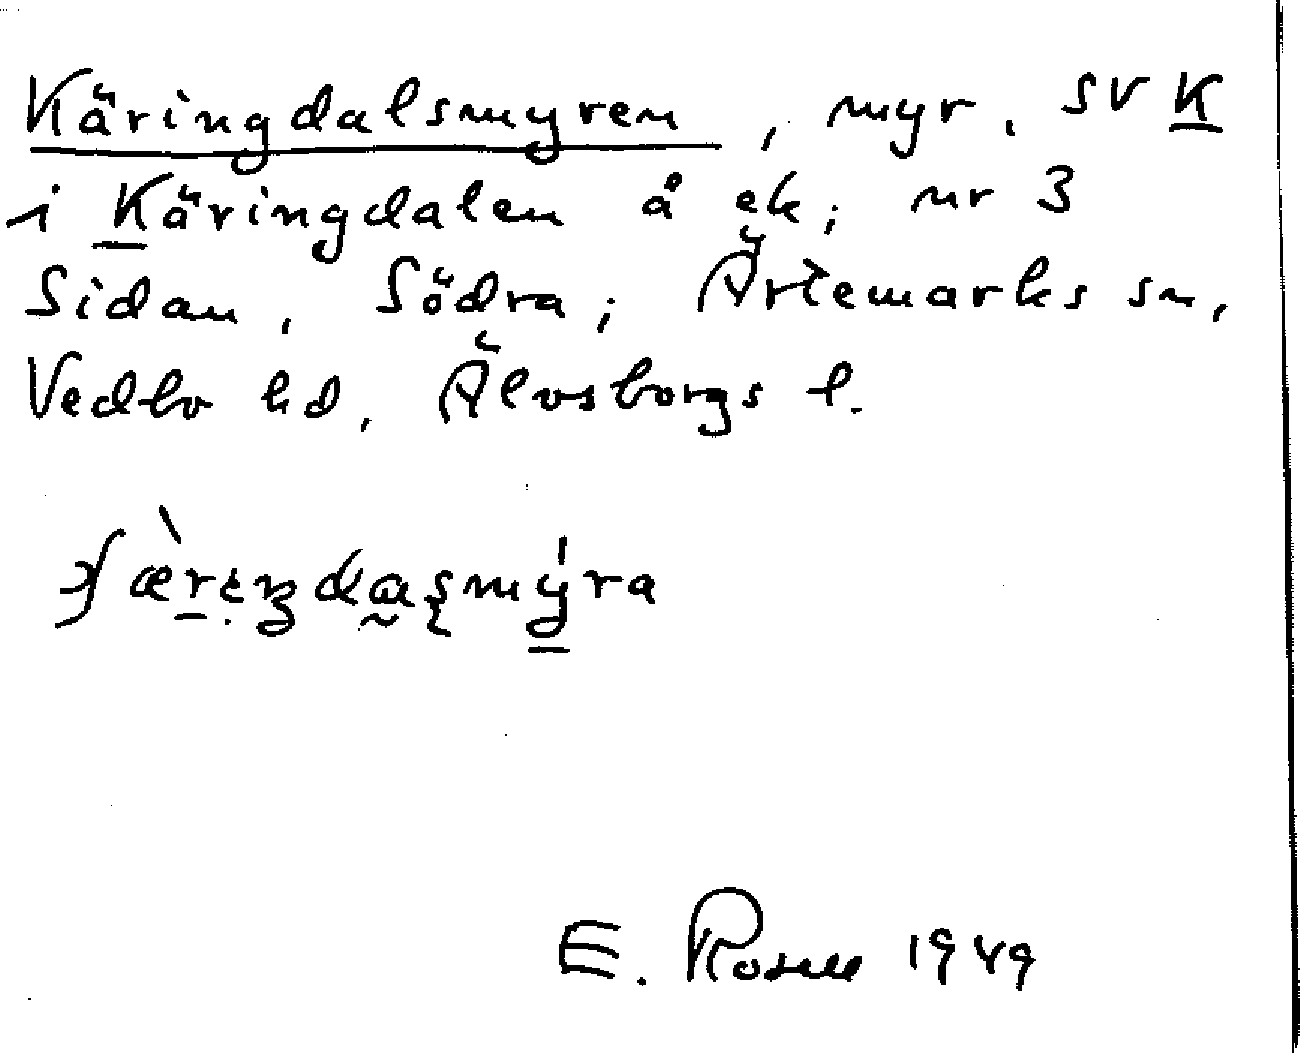 Käringdalsmyren, myr, SV K
i Käringdalen å ek; nr 3
Sidan, Södra; Ärtemarks sn,
Vedbo hd, Älvsborgs l.
E. Rosell 1949